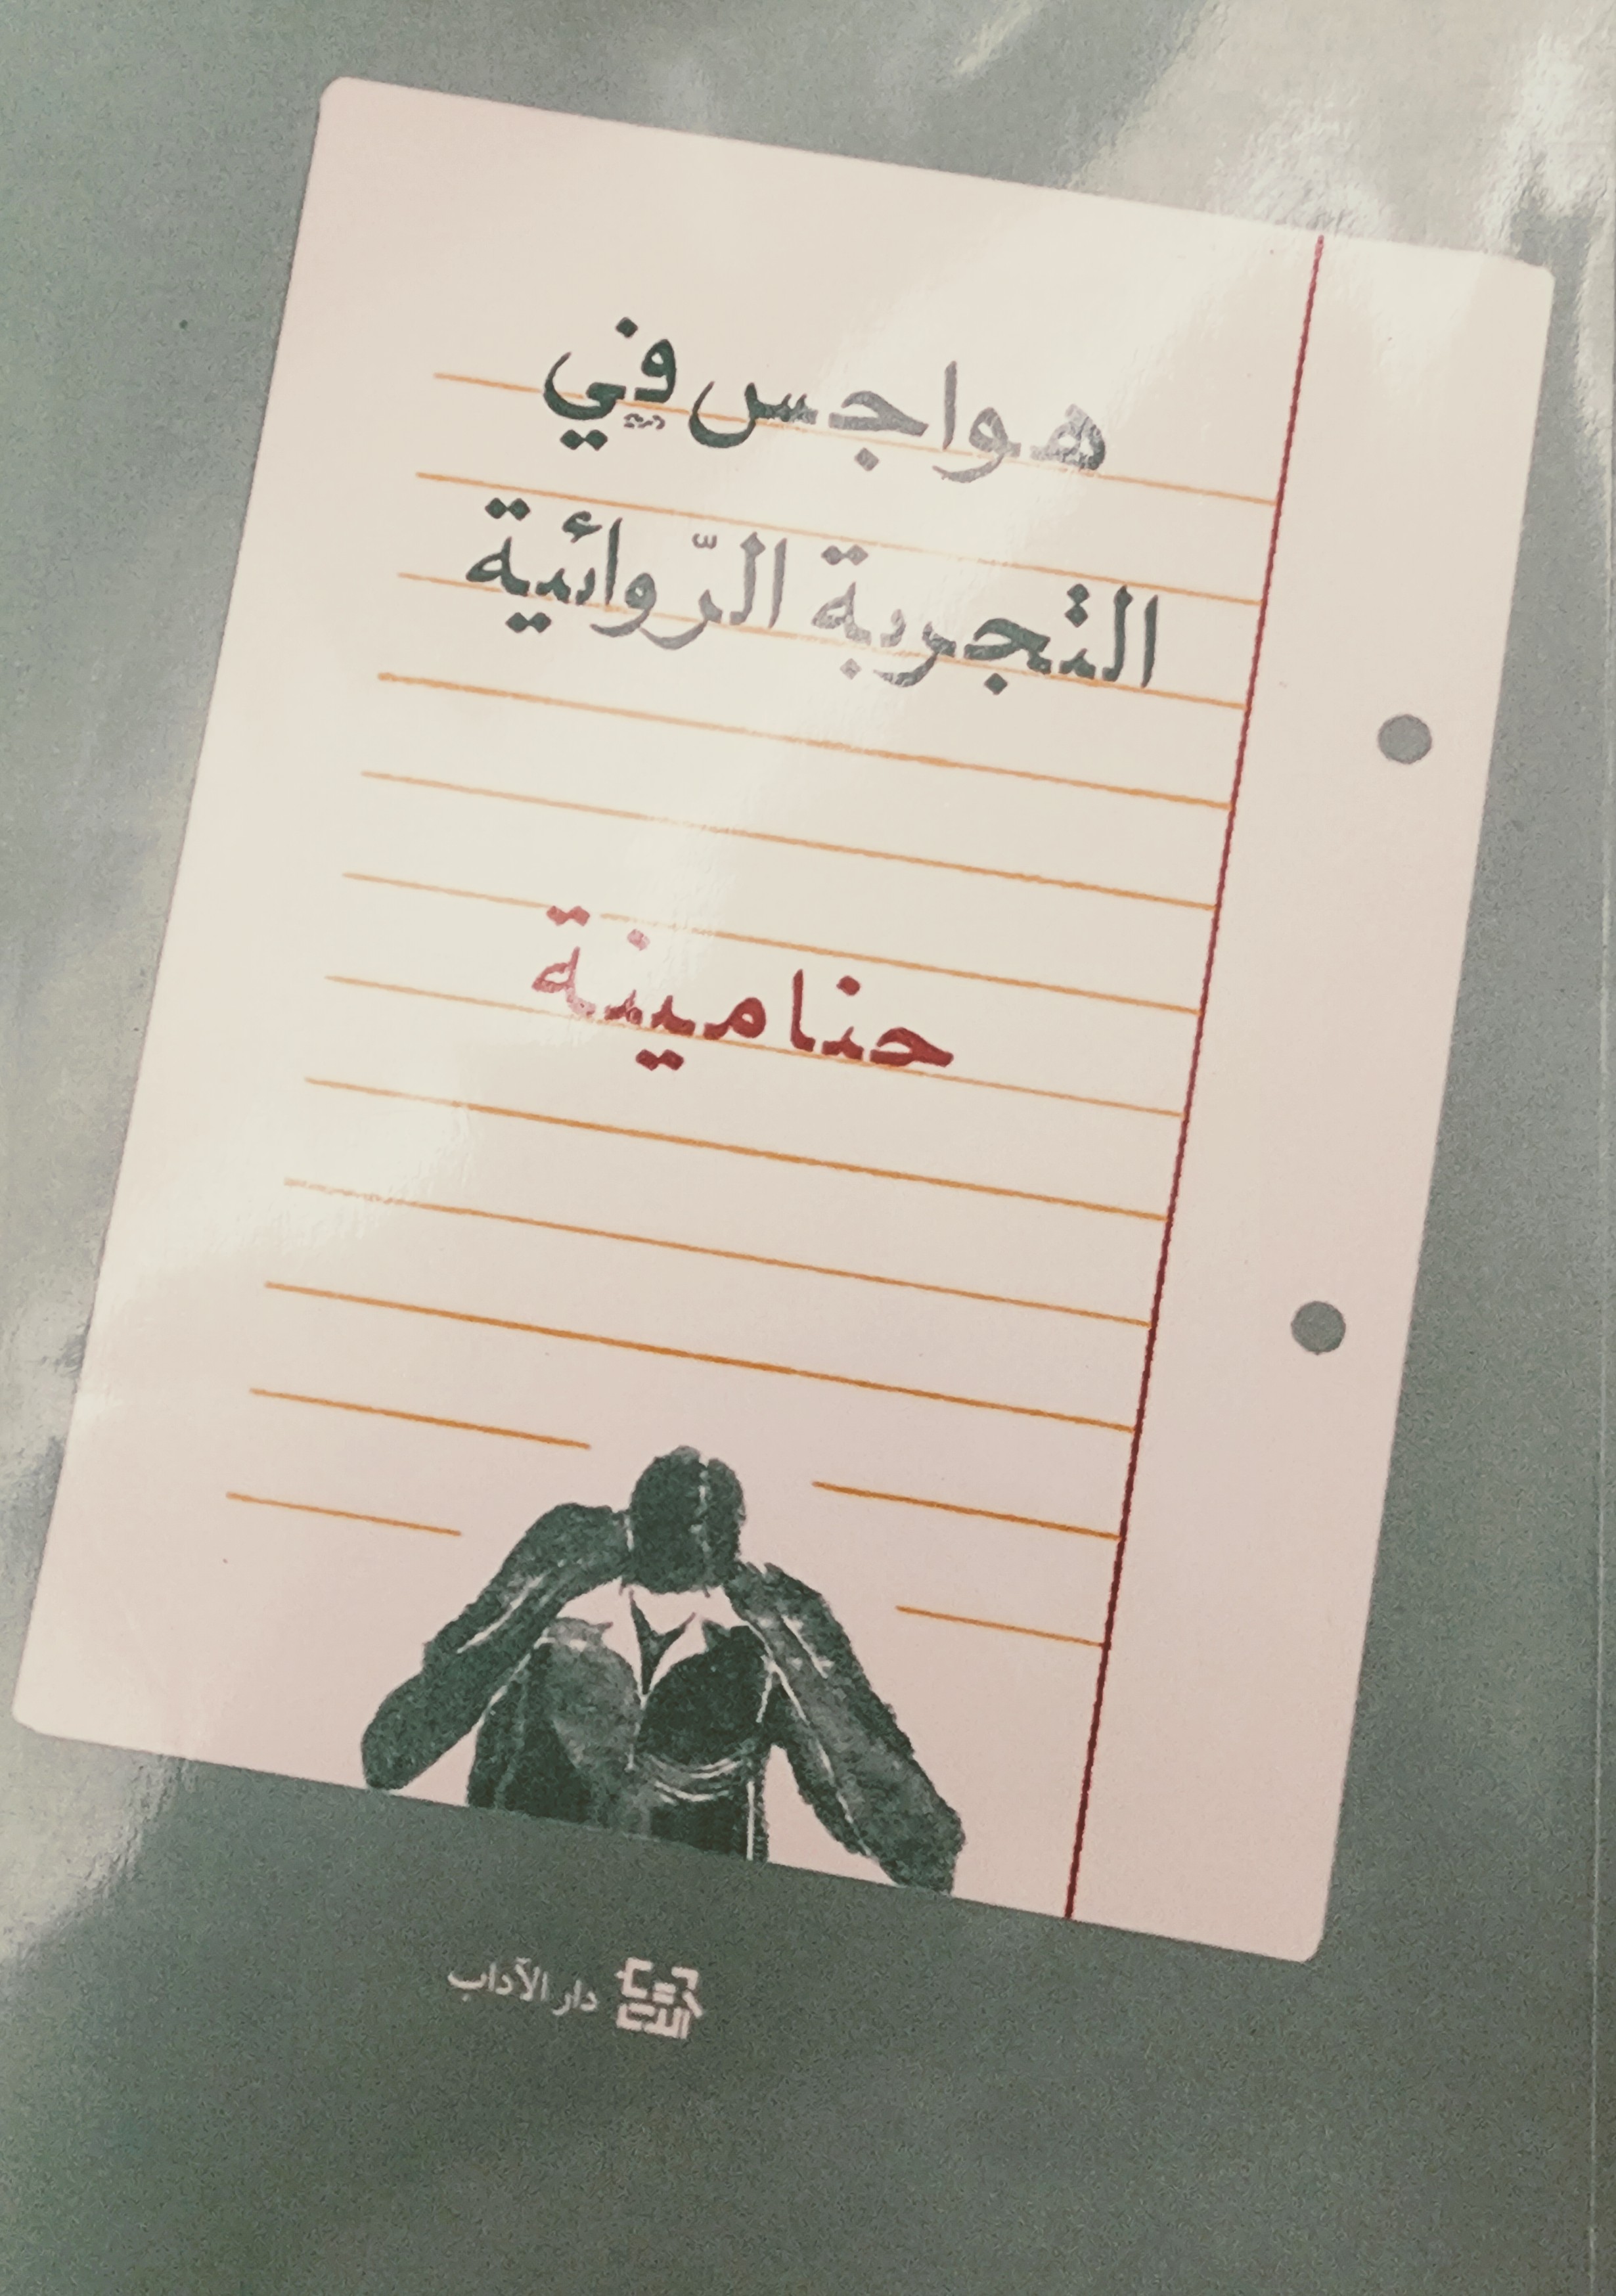 هواجس في
التجربة الرّوائية
حنا مينة
دار الآداب